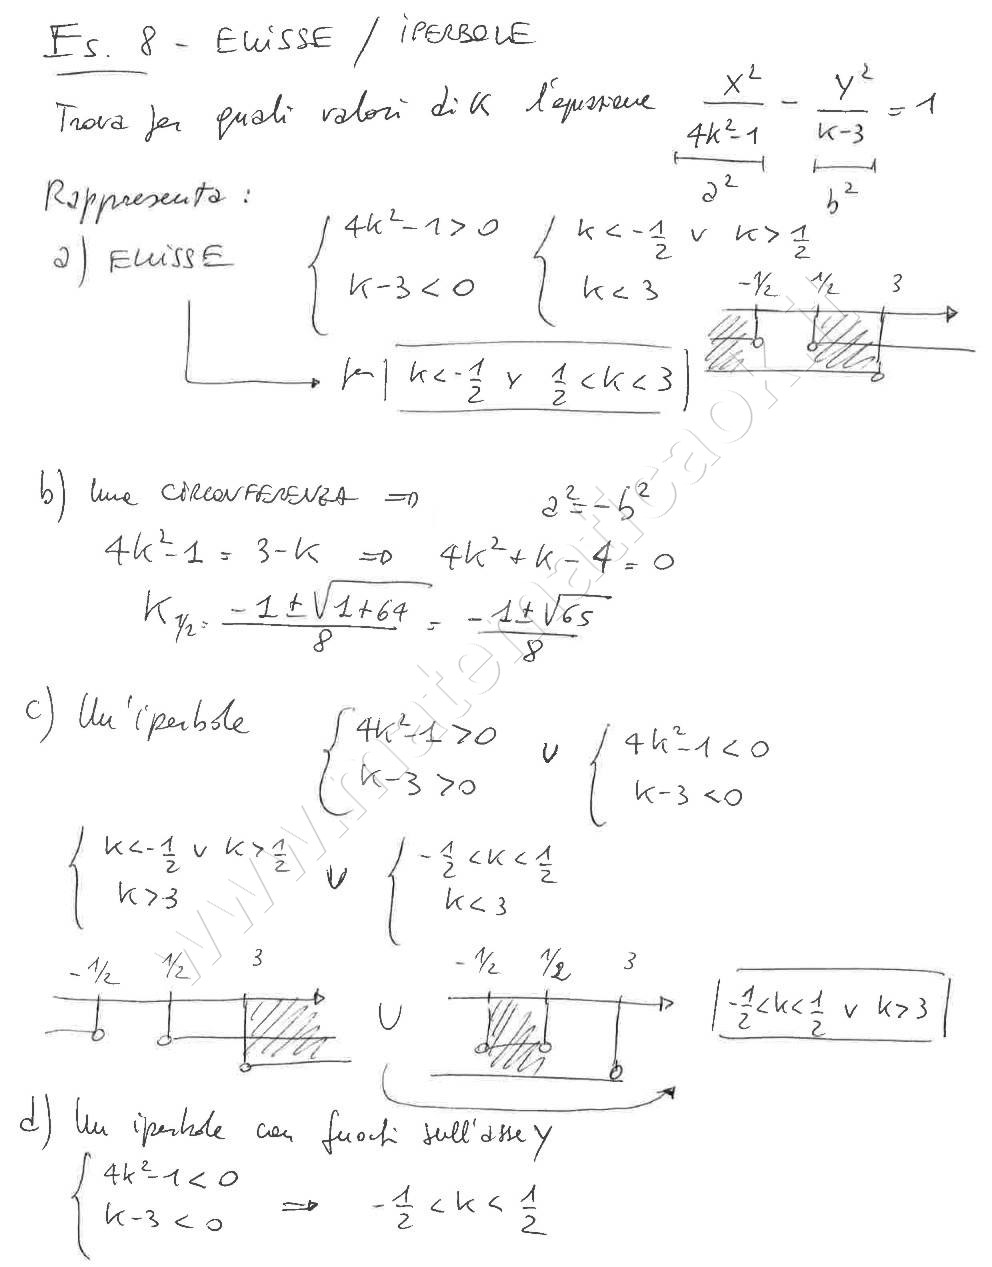 Es. 8 - ELLISSE / IPERBOLE
Trova per quali valori di K l'equazione x²/(4k²-1) - y²/(k-3) = 1
a² b²
Rappresenta:
a) ELLISSE { 4k²-1>0 { k<-1/2 v k>1/2
k-3<0 k<3
-1/2 1/2 3
per k<-1/2 v 1/2<k<3
b) Una CIRCONFERENZA => a²=-b²
4k²-1 = 3-k => 4k²+k-4=0
K1/2 = (-1±√(1+64))/8 = (-1±√65)/8
c) Un'iperbole { 4k²-1>0 v { 4k²-1<0
k-3>0 k-3<0
{ k<-1/2 v k>1/2 v { -1/2<k<1/2
k>3 k<3
-1/2 1/2 3 -1/2 1/2 3
U -1/2<k<1/2 v k>3
d) Un iperbole con fuochi sull'asse y
{ 4k²-1<0
k-3<0 => -1/2<k<1/2
www.matematicaok.it